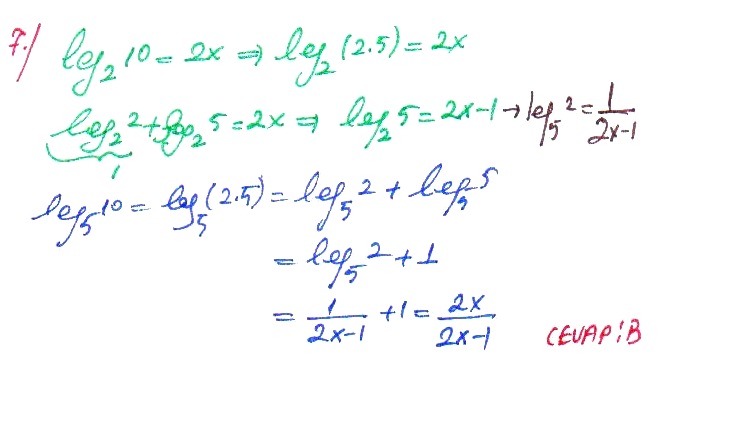 7.) log₂10 = 2x ⇒ log₂(2.5) = 2x
log₂2 + log₂5 = 2x ⇒ log₂5 = 2x-1 → log₅2 = 1/(2x-1)
1
log₅10 = log₅(2.5) = log₅2 + log₅5
= log₅2 + 1
= 1/(2x-1) + 1 = 2x/(2x-1)
CEVAP: B